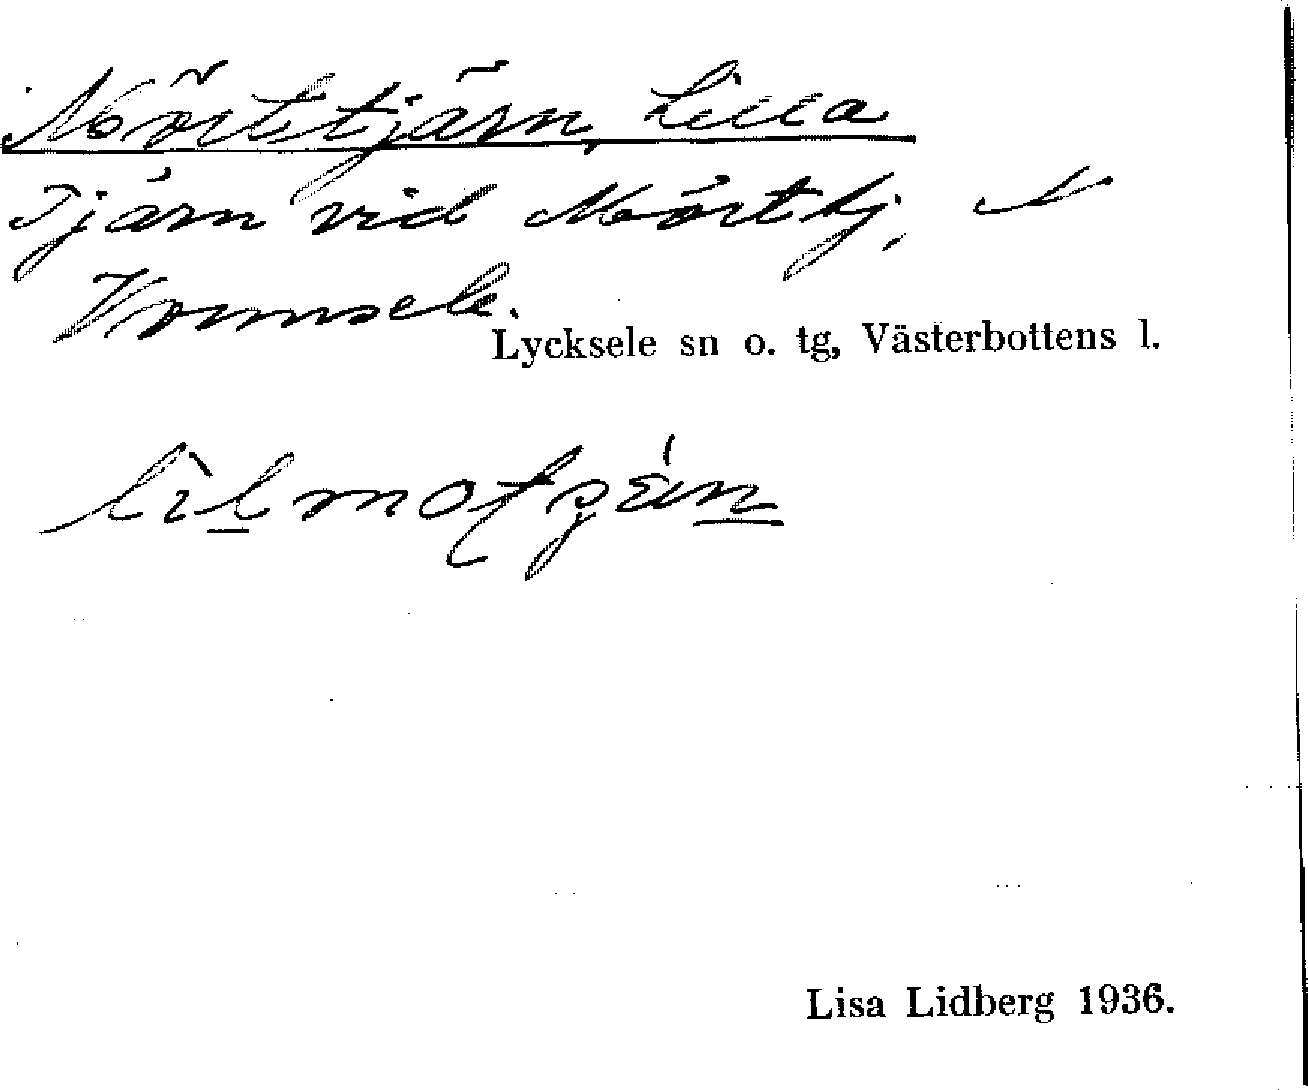 Mörttjärn, Lilla
Tjärn vid Mörttj, N
Vormsele.
Lycksele sn o. tg, Västerbottens l.
Lisa Lidberg 1936.